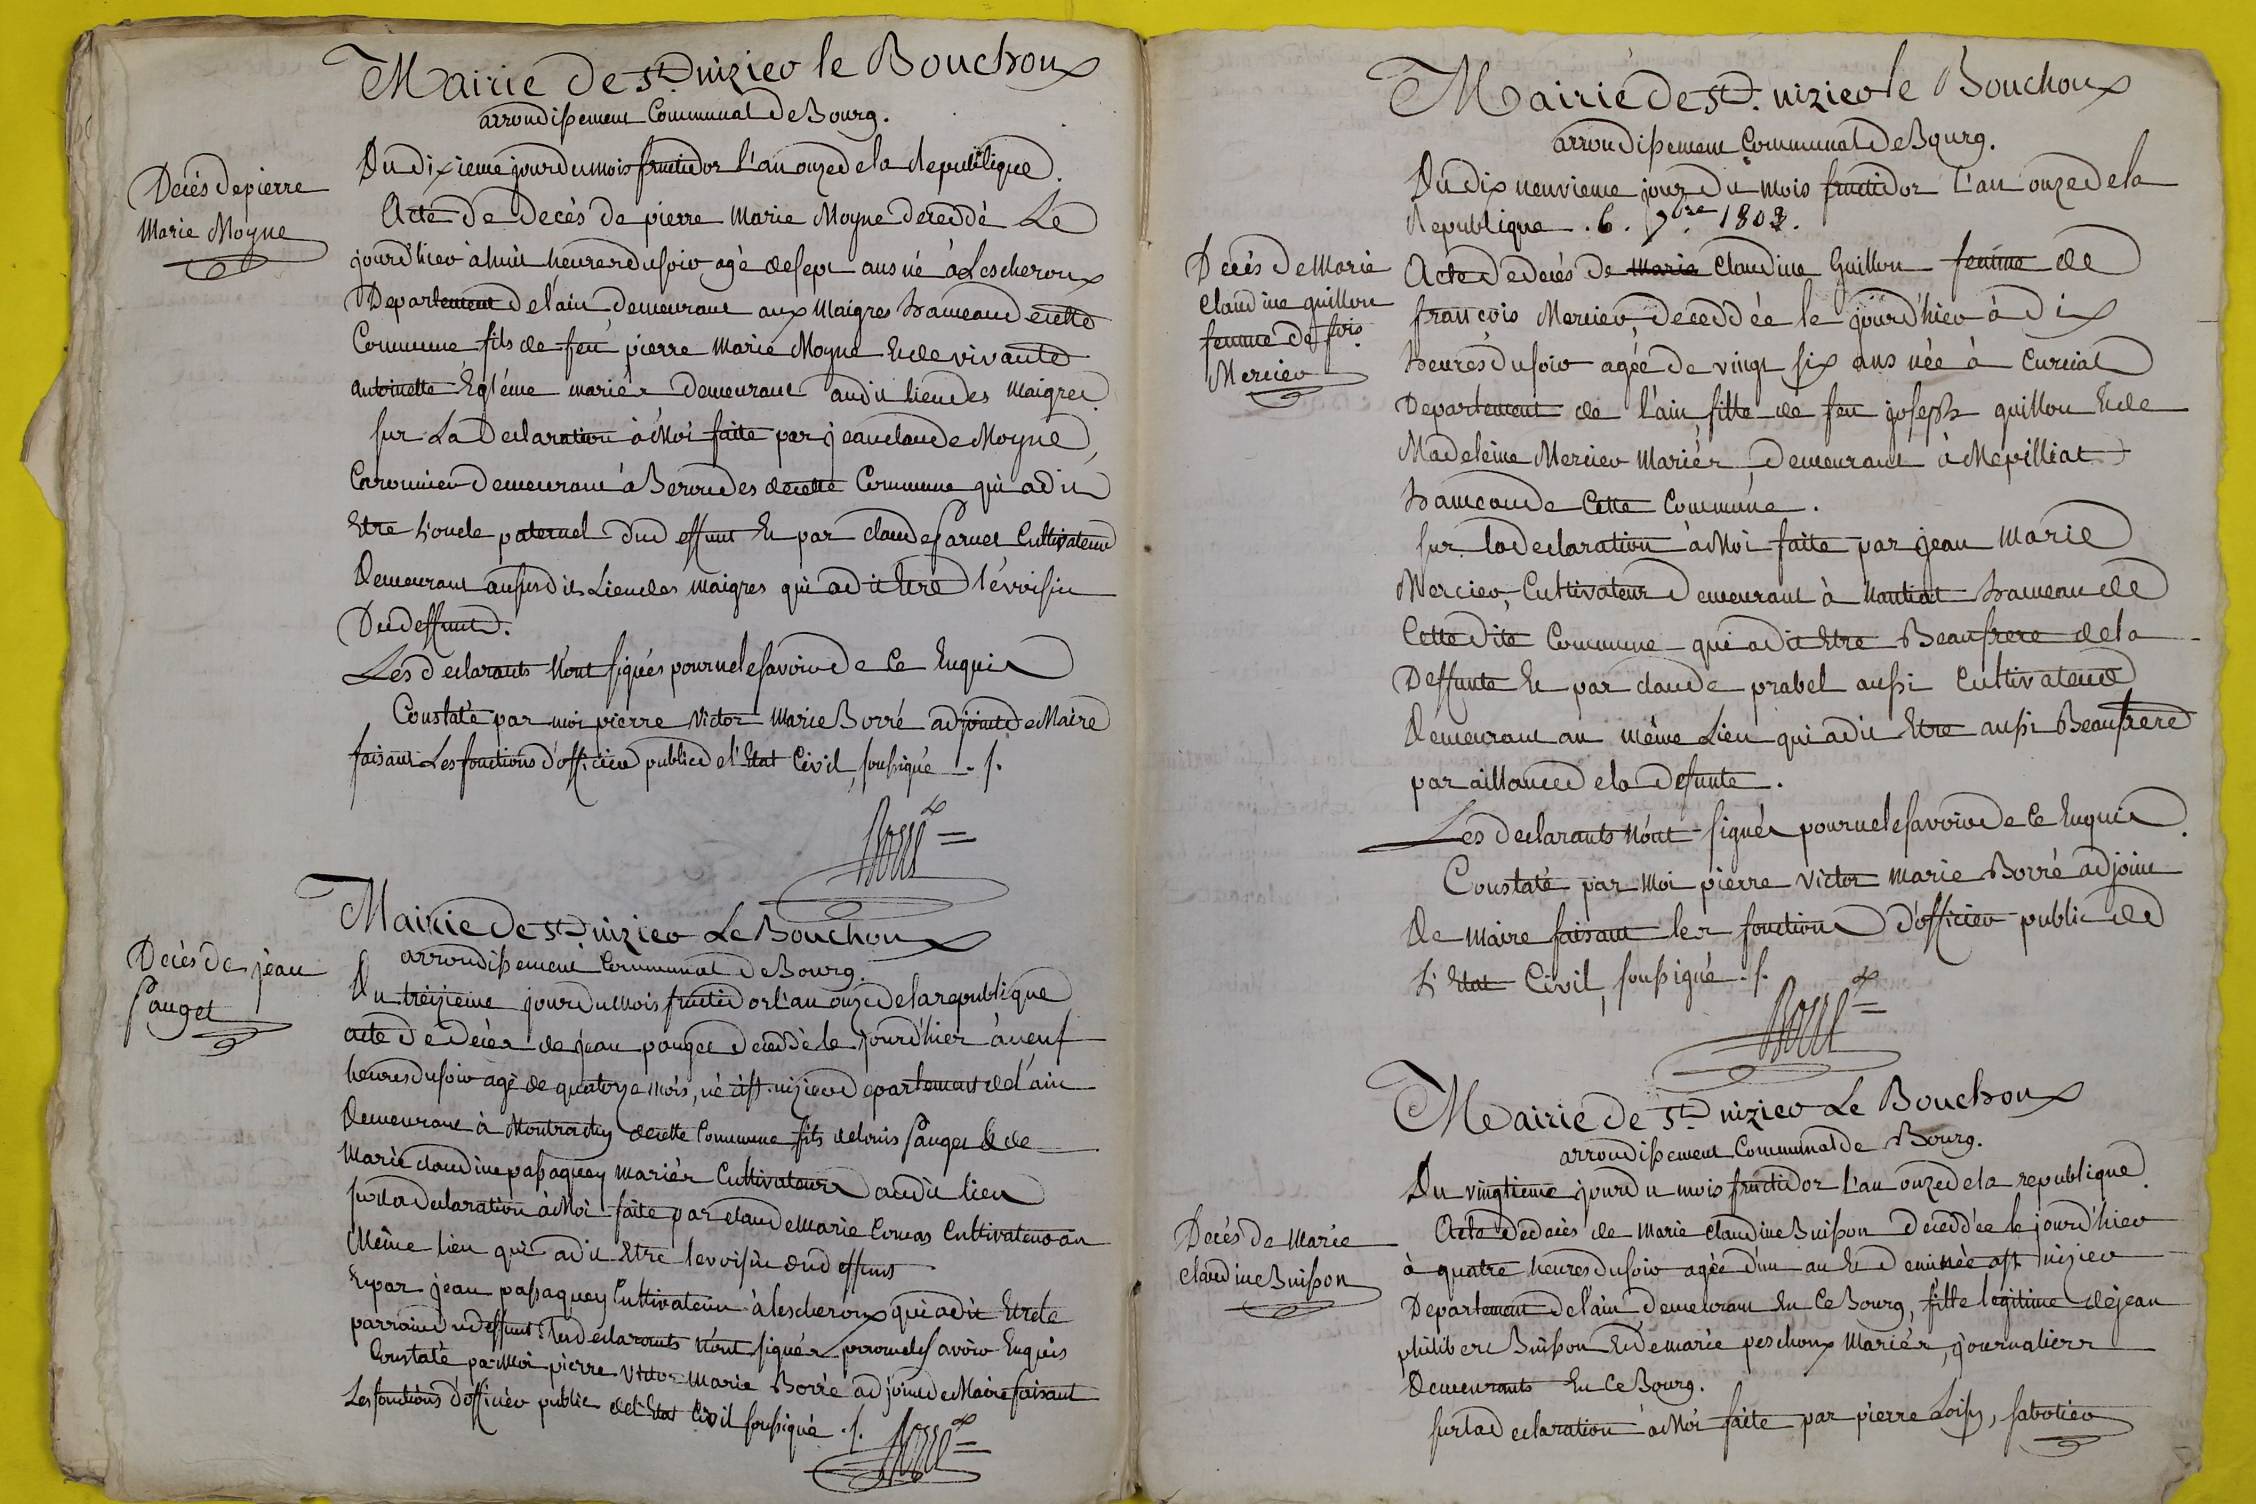 Mairie De St. nizier le Bouchoux
arrondissement Communal De Bourg.
Decés de pierre
Marie Moyne
Du dixieme jour du mois fructidor l'an onze de la republique.
Acte de Decés de pierre Marie Moyne decedé Le
jourd'hier à huit heures du soir, agé de sept ans né à Lescheroux
Departement de l'ain demeurant aux Maigres hameau de cette
Commune fils de feu pierre Marie Moyne Et de vivante
antoinette Egléme mariés Demeurant audit lieu des Maigres.
sur La Declaration à Moi faite par jean claude Moyne,
demeurant à Beroudes de cette Commune qui a dit
Etre L'oncle paternel du deffunt Et par claude Parvet Cultivateur
Demeurant ausus dit Lieu des Maigres qui a dit Etre le voisin
Du deffunt.
Les declarants N'ont signés pour ne le savoir de Ce Enquis
Constaté par moi pierre Victor Marie Borré adjoint de Maire
faisant Les fonctions d'officier public de l'Etat Civil, soussigné ./.
Borré
Mairie De St. nizier Le Bouchoux
arrondissement Communal De Bourg.
Decés de jean
Pauget
Du treizieme jour du Mois fructidor l'an onze de la republique
acte De Decés de jean pauget decedé le jourd'hier à neuf
heures du soir agé de quatorze mois, né à St. nizier departement de l'ain
Demeurant à Montrachy de cette Commune fils de louis Pauget & de
Marie claudine passaquey mariés Cultivateurs audit lieu
sur la Declaration à Moi faite par claude Marie Comas Cultivateur au
Même lieu qui a dit Etre le voisin du deffunt
Et par jean passaquey Cultivateur à lescheroux qui a dit Etre le
parrain du deffunt. Les declarants N'ont signés pour ne le savoir Enquis
Constaté par Moi pierre Victor Marie Borré adjoint de Maire faisant
Les fonctions d'officier public de l'Etat Civil soussigné ./.
Borré
Mairie De St. nizier le Bouchoux
arrondissement Communal De Bourg.
Du dix neuvieme jour Du mois fructidor l'an onze de la
Republique . 6. 7bre 1803.
Decés De Marie
Claudine guillon
femme de fois.
Mercier
Acte De decés de Marie Claudine Guillon femme de
françois Mercier, Decedée le jourd'hier à dix
heures du soir agée de vingt six ans née à Curciat
Departement de l'ain, fille de feu joseph guillon Et de
Madeleine Mercier Mariés, Demeurant à Mepilliat
hameau de Cette Commune.
sur la declaration à Moi faite par jean Marie
Mercier, Cultivateur Demeurant à Nantiat hameau de
Cette dite Commune qui a dit Etre Beaufrere de la
Deffunte Et par claude prabel aussi Cultivateur
Demeurant au même Lieu qui a dit Etre aussi Beaufrere
par alliance de la defunte.
Les declarants N'ont signés pour ne le savoir de Ce Enquis.
Constaté par Moi pierre Victor Marie Borré adjoint
De Maire faisant les fonctions D'officier public de
L'Etat Civil, soussigné ./.
Borré
Mairie De St. nizier Le Bouchoux
arrondissement Communal de Bourg.
Du vingtieme jour du mois fructidor l'an onze de la republique.
Decés de Marie
Claudine Buisson
Acte De decés de Marie claudine Buisson decedée le jourd'hier
à quatre heures du soir agée d'un an Et demi née à St. nizier
Departement de l'ain demeurant En Ce Bourg, fille legitime de jean
philibert Buisson Et de marie peschoux Mariés, journaliers
Demeurants En Ce Bourg.
sur la declaration à Moi faite par pierre Loisy, sabotier